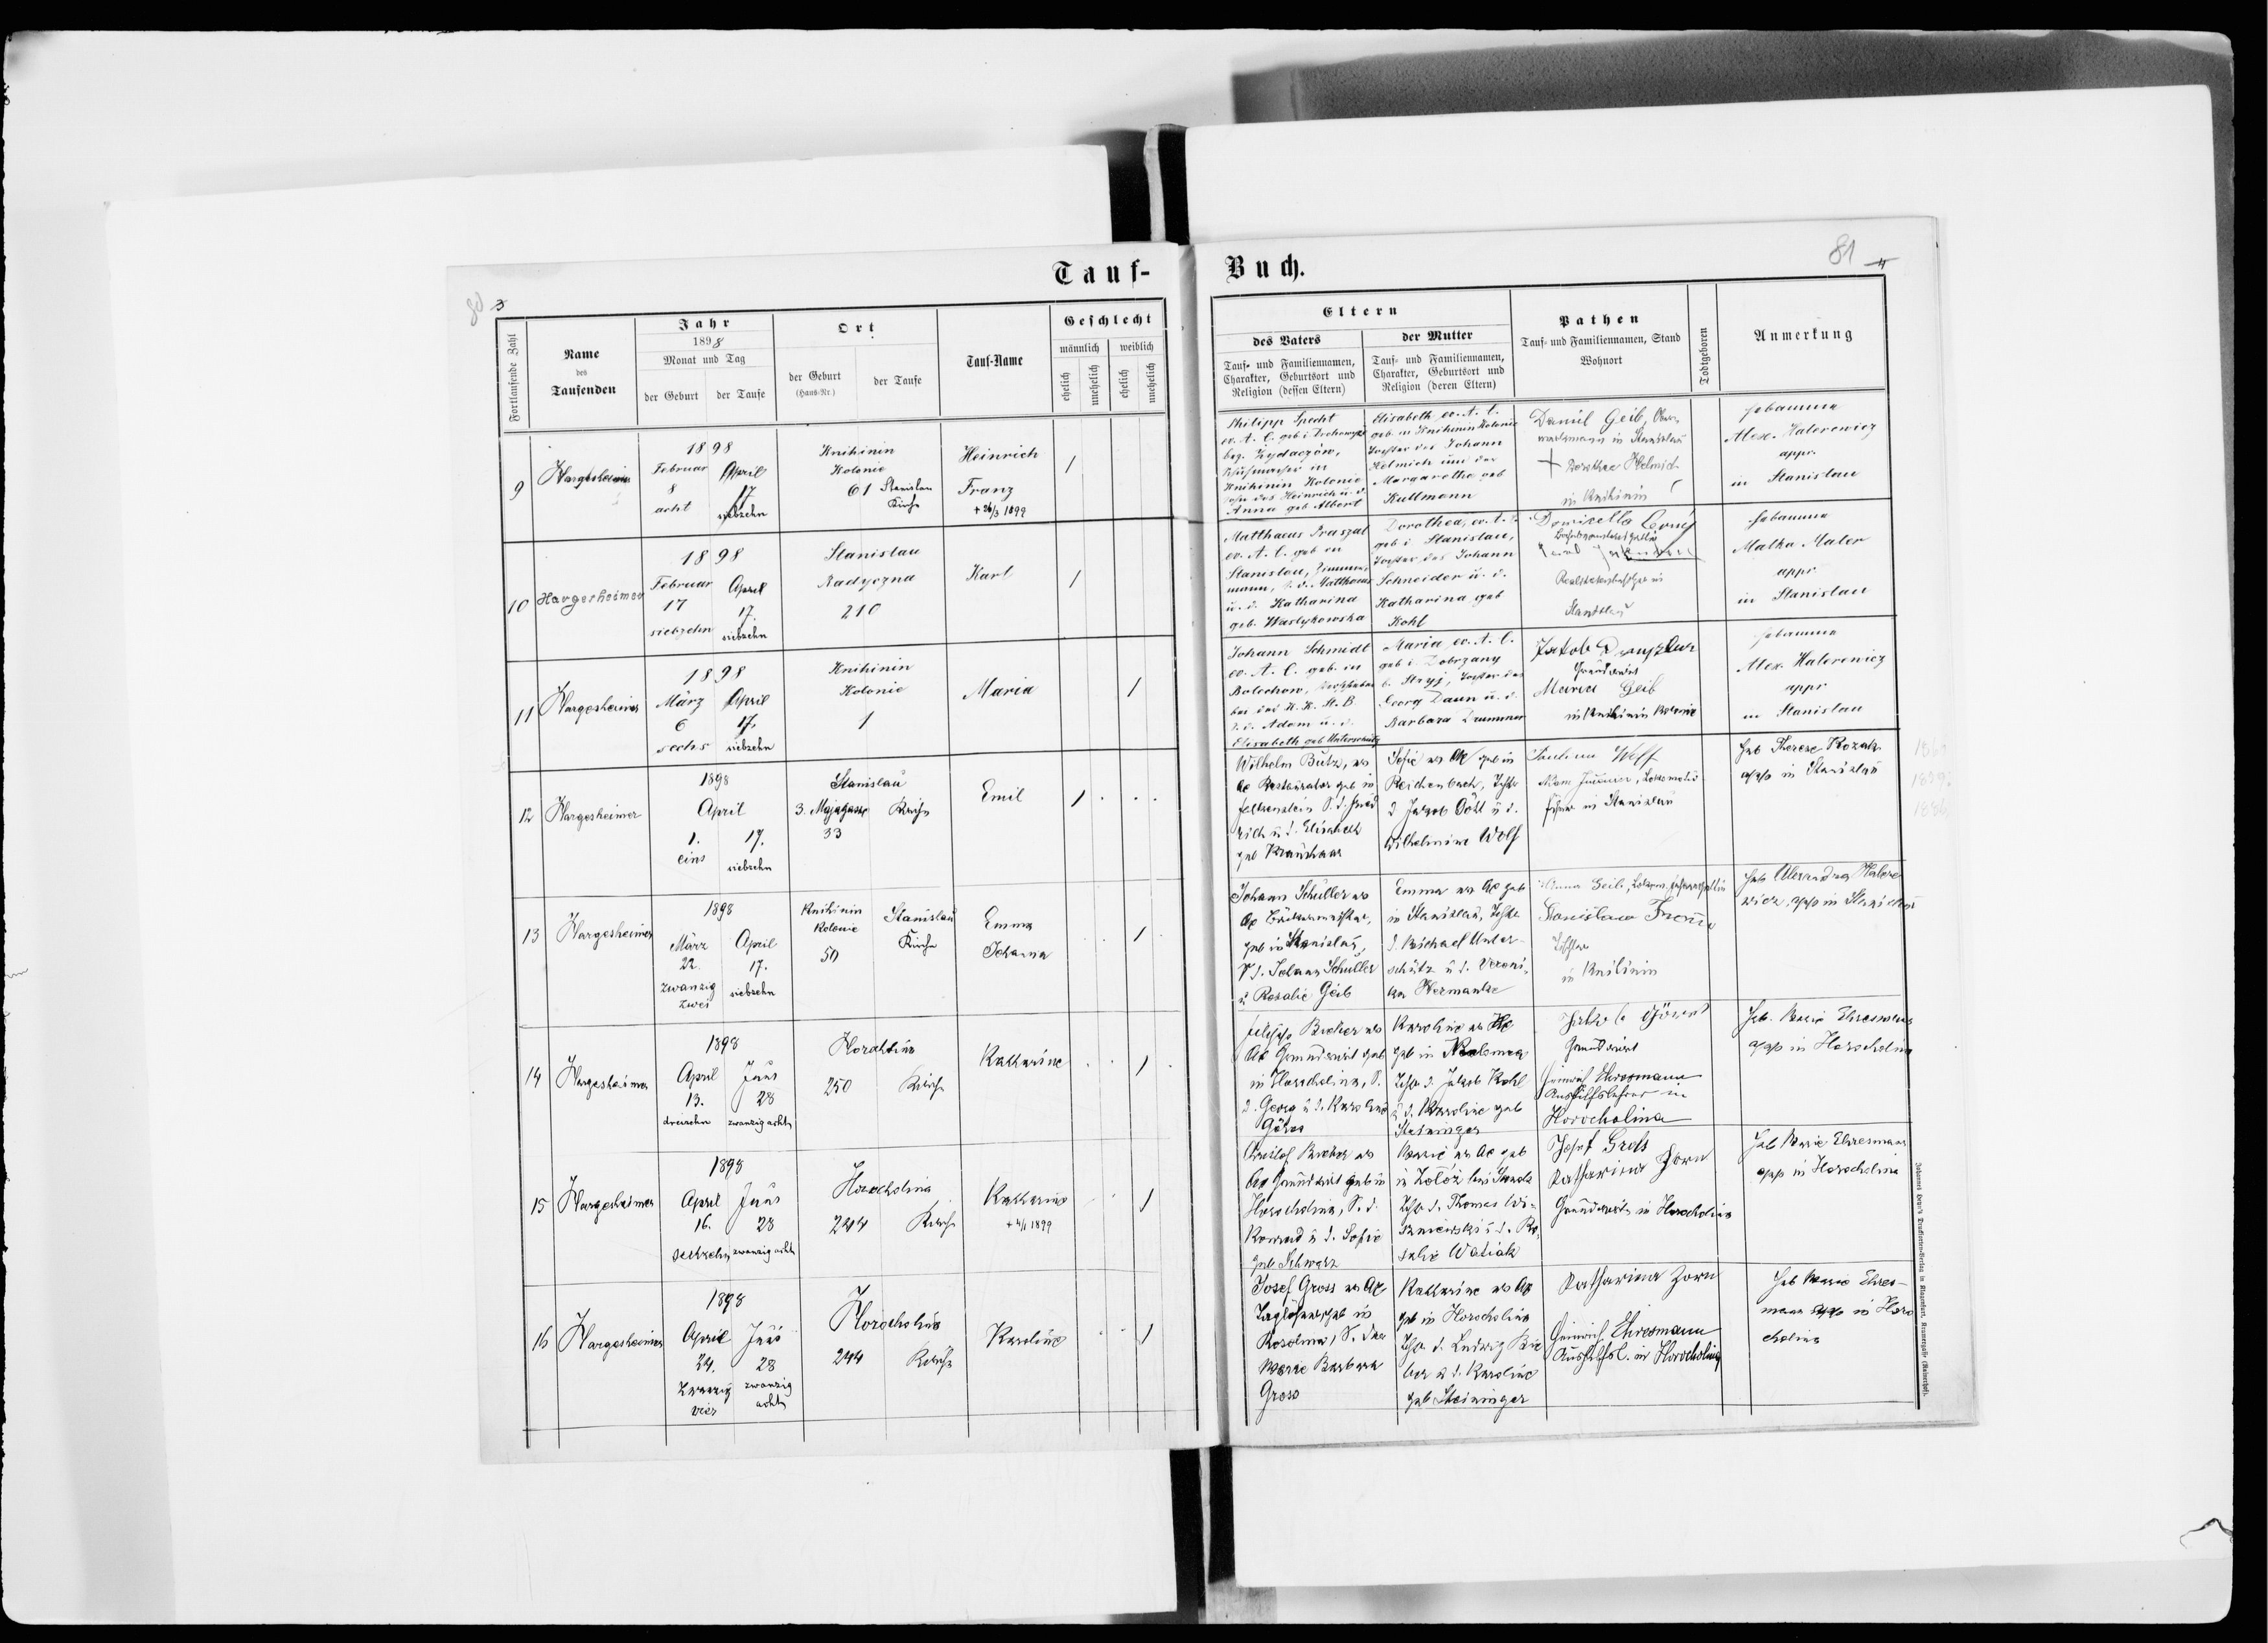 Tauf-
Buch.
80 3
81 4
Fortlaufende Zahl
Name
des
Taufenden
Jahr
1898
Monat und Tag
der Geburt
der Taufe
Ort
der Geburt
(Haus-Nr.)
der Taufe
Tauf-Name
Geschlecht
männlich
weiblich
ehelich
unehelich
ehelich
unehelich
Eltern
des Vaters
Tauf- und Familiennamen,
Charakter, Geburtsort und
Religion (dessen Eltern)
der Mutter
Tauf- und Familiennamen,
Charakter, Geburtsort und
Religion (deren Eltern)
Pathen
Tauf- und Familiennamen, Stand
Wohnort
Todtgeboren
Anmerkung
9
Hargesheimer
1898
Februar
8
acht
April
17
siebzehn
Knihinin
Kolonie
61
Stanislau
Kirche
Heinrich
Franz
+ 26/3 1899
/
Philipp Specht
ev. A. C. geb i
bez. Zydaczów,
Knihinin Kolonie
Sohn des Heinrich u. d.
Anna geb Albert
Elisabeth ev. A. C.
geb in Knihinin Kolonie
Tochter des Johann
Helmich und der
Margarethe geb
Kullmann
Daniel Geib,
in Stanislau
+ Dorothea Helmich
in Knihinin
Hebamme
Alex. Haterewicz
appr.
in Stanislau
10
Hargesheimer
1898
Februar
17
siebzehn
April
17.
siebzehn
Stanislau
Radyczna
210
Karl
/
Matthaeus Praszal
ev. A. C. geb in
Stanislau, Zimmer
mann, S. d. Matthaeus
u. d. Katharina
geb. Waslykowska
Dorothea, ev. A. C.
geb i Stanislau,
Tochter des Johann
Schneider u. d.
Katharina geb
Kohl
Hebamme
Malka Maler
appr.
in Stanislau
11
Hargesheimer
1898
März
6
sechs
April
17.
siebzehn
Knihinin
Kolonie
1
Maria
/
Johann Schmidt
ev. A. C. geb. in
Bolechow,
der K. K. St. B.
S. d. Adam u. d.
Elisabeth geb Unterschütz
Maria, ev. A. C.
geb i. Dobrzany
b. Stryj, Tochter des
Georg Daum u. d.
Barbara Drummer
Jakob
Grundwirt
Maria Geib
in Knihinin Kolonie
Hebamme
Alex. Haterewicz
appr
in Stanislau
12
Hargesheimer
1898
April
1.
eins
17.
siebzehn
Stanislau
3. Majagasse
33
Kirche
Emil
/
Wilhelm Butz, ev
AC Restaurateur geb in
Falkenstein S. d. Fried
rich u. d. Elisabeth
geb Kraushaar
Sofie ev AC geb in
Reichenbach, Tochter
d Jakob Dött u d.
Wilhelmine Wolf
Wolff
führer in Stanislau
Heb Therese Kozak
appr in Stanislau
13
Hargesheimer
1898
März
22.
zwanzig
zwei
April
17.
siebzehn
Knihinin
Kolonie
50
Stanislau
Kirche
Emma
Johanna
/
Johann Schuller ev
AC Bäckermeister,
geb in Stanislau,
S d. Johann Schuller
u Rosalie Geib
Emma ev AC geb
in Stanislau, Tochter
d. Michael Unter-
schütz u d. Veroni-
ka
Anna Geib,
Stanislaw
Tischler
in Knihinin
Heb Alexandra Hatere
wicz, appr in Stanislau
14
Hargesheimer
1898
April
13.
dreizehn
Juni
28
zwanzig acht
Horocholina
250
Kirche
Katharine
/
Philipp Bieber ev
AC Grundwirt geb
in Horocholina, S.
d. Georg u d. Karoline
Karoline ev AC
geb in
Tochter d. Jakob Kohl
u d. Karoline geb
Steininger
Jakob
Grundwirt
Heinrich Ehresmann
Aushilfslehrer in
Horocholina
Heb. Marie Ehresmann
appr in Horocholina
15
Hargesheimer
1898
April
16.
sechzehn
Juni
28
zwanzig acht
Horocholina
244
Kirche
Katharine
+ 4/1 1899
/
Christof Bieber ev
AC Grundwirt geb in
Horocholina, S. d.
Konrad u d. Sofie
geb Schwarz
Marie ev AC geb
Tochter d. Thomas Wi-
szniewski u d. Ro-
salie Watiak
Josef Groß
Katharina Zorn
Grundwirte in Horocholina
Heb Marie Ehresmann
appr in Horocholina
16
Hargesheimer
1898
April
24.
zwanzig
vier
Juni
28
zwanzig
acht
Horocholina
244
Kirche
Karoline
/
Josef Gross ev AC
Taglöhner geb in
S. der
Marie Barbara
Gross
Katharine ev AC
geb in Horocholina
Tochter d. Ludwig Bie
ber u d. Karoline
geb Steininger
Katharina Zorn
Heinrich Ehresmann
Aushilfsl. in Horocholina
Heb Marie Ehres-
mann appr in Horo
cholina